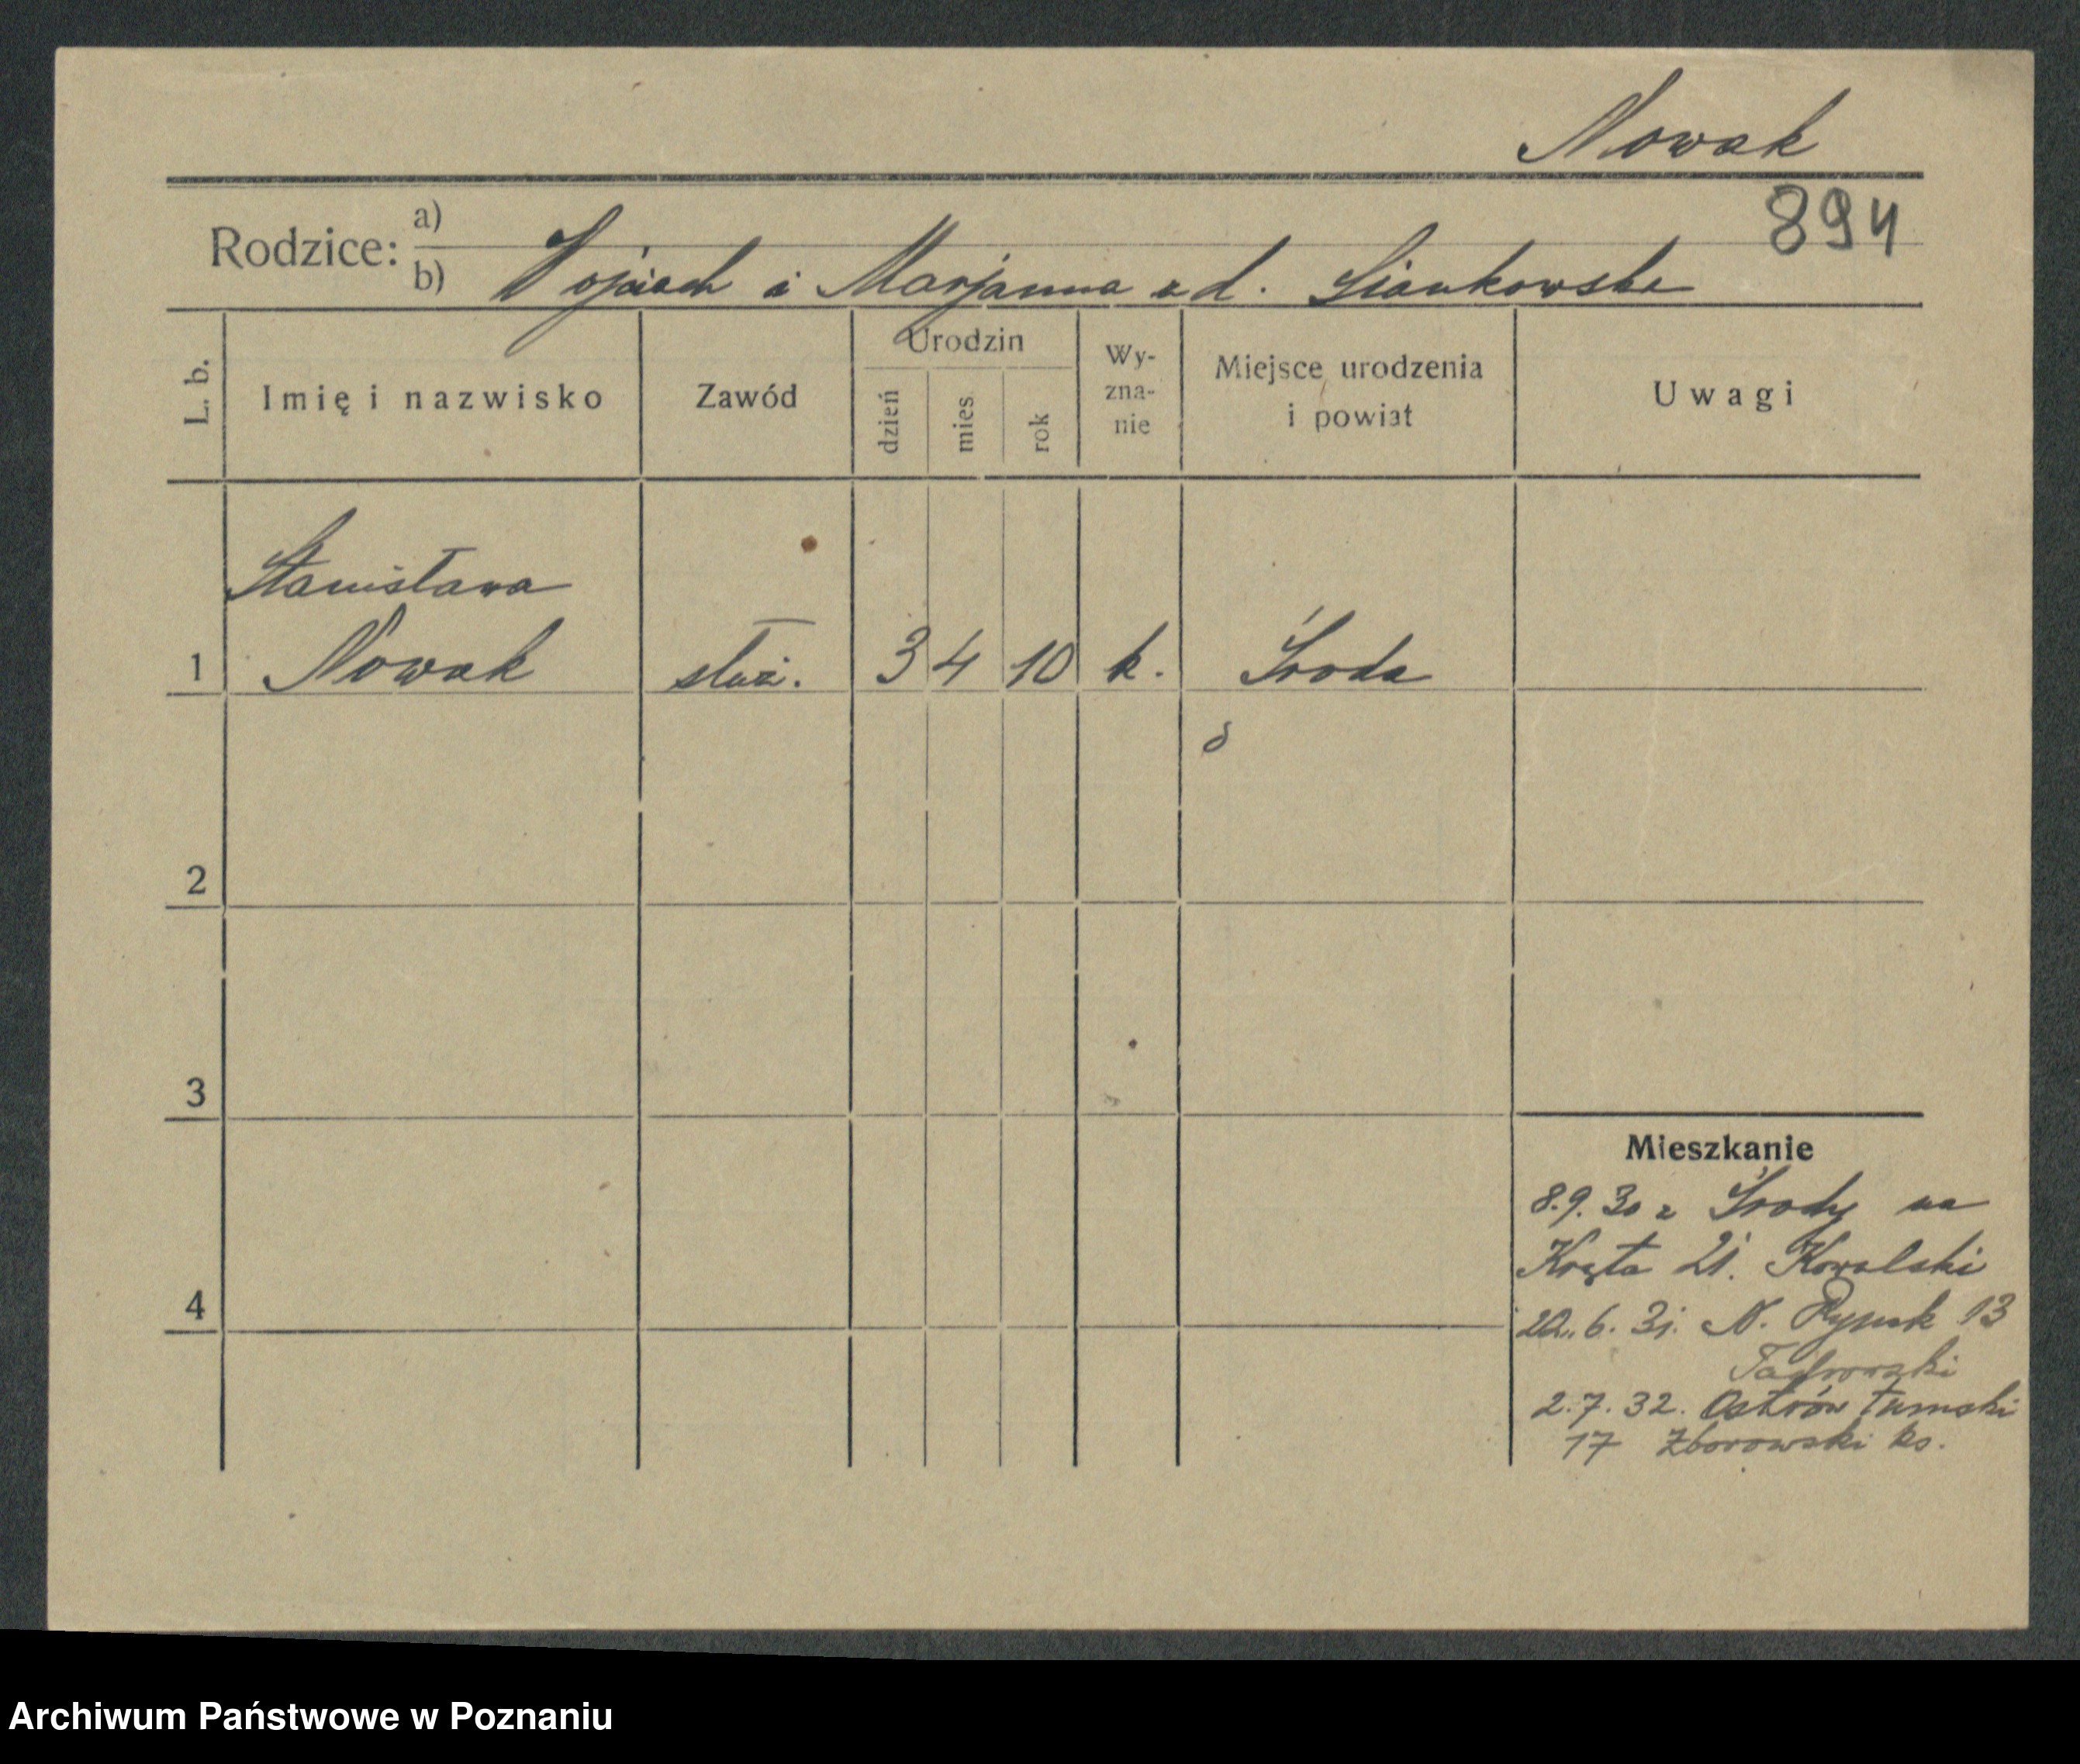 Nowak
894
Rodzice: a)
b) Wojciech i Marjanna z d. Siankowska
L. b. Imię i nazwisko Zawód Urodzin dzień mies rok Wy-zna-nie Miejsce urodzenia i powiat Uwagi
Stanisława
1 Nowak służ. 3 4 10 k. Środa
2
3
Mieszkanie
8.9.30 z Środy na
Kręta 21. Kowalski
4
N. Rynek 13
2.7.32. Ostrów tumski
17 Zborowski ks.
Archiwum Państwowe w Poznaniu